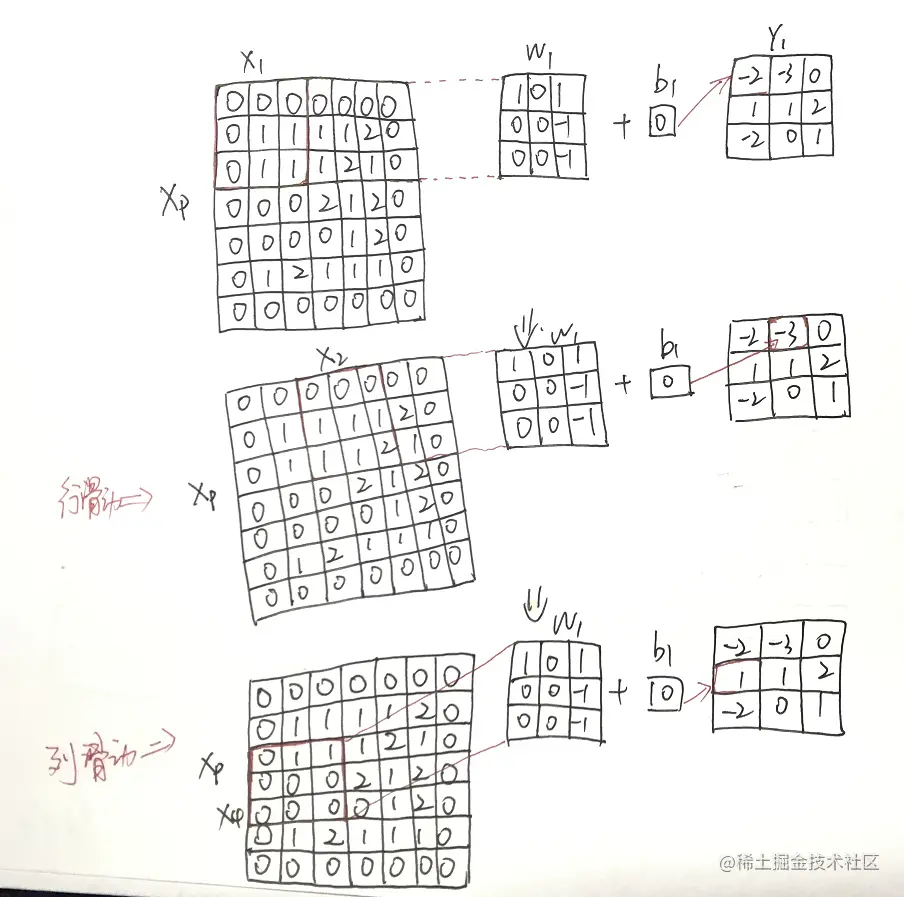 X1
0 0 0 0 0 0 0
0 1 1 1 1 2 0
0 1 1 1 2 1 0
0 0 0 2 1 2 0
0 0 0 0 1 2 0
0 1 2 1 1 1 0
0 0 0 0 0 0 0
Xp
W1
1 0 1
0 0 -1
0 0 -1
+
b1
0
Y1
-2 -3 0
1 1 2
-2 0 1
行滑动⇒
Xp
X2
0 0 0 0 0 0 0
0 1 1 1 1 2 0
0 1 1 1 2 1 0
0 0 0 2 1 2 0
0 0 0 0 1 2 0
0 1 2 1 1 1 0
0 0 0 0 0 0 0
W1
1 0 1
0 0 -1
0 0 -1
+
b1
0
-2 -3 0
1 1 2
-2 0 1
列滑动⇒
Xp
0 0 0 0 0 0 0
0 1 1 1 1 2 0
0 1 1 1 2 1 0
0 0 0 2 1 2 0
0 0 0 0 1 2 0
0 1 2 1 1 1 0
0 0 0 0 0 0 0
W1
1 0 1
0 0 -1
0 0 -1
+
b1
0
-2 -3 0
1 1 2
-2 0 1
@稀土掘金技术社区